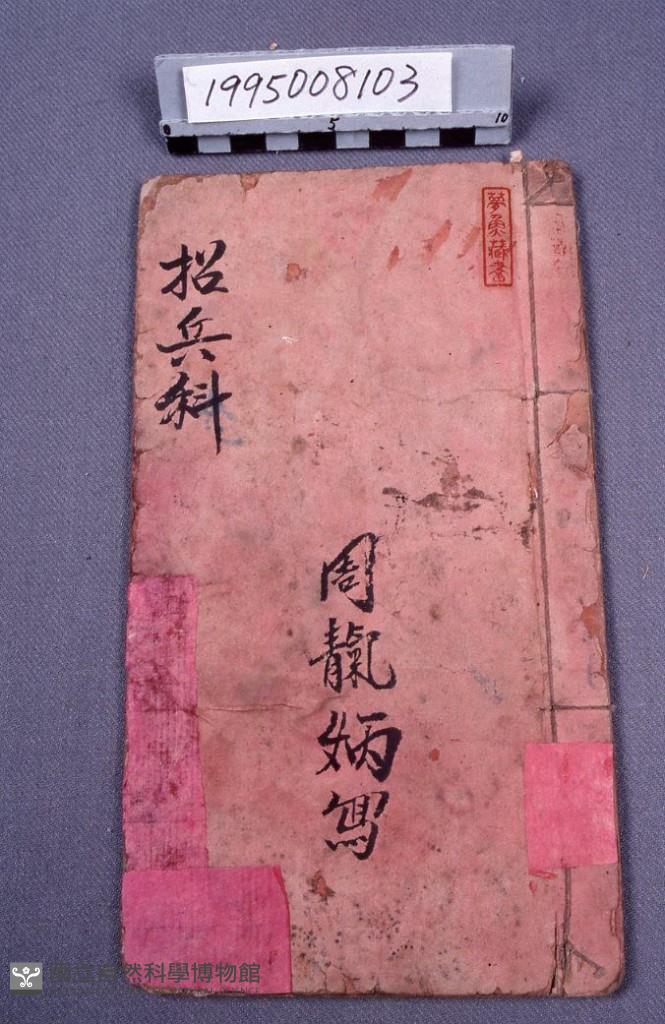 1995008103
0 5 10
夢魚藏書
招兵科
周龍炳寫
國立自然科學博物館